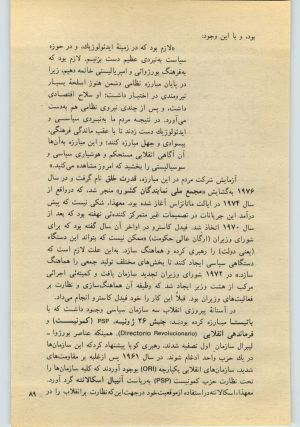 بود، و با این وجود:
«لازم بود که در زمینهٔ ایدئولوژیک، و در حوزه
سیاست به‌نبردی عظیم دست بزنیم. لازم بود که
به‌فرهنگ بورژوائی و امپریالیستی خاتمه دهیم، زیرا
در پایان مبارزه نظامی دشمن هنوز اسلحهٔ بسیار
نیرومندی در اختیار داشت: او سلاح اقتصادی
داشت، و پس از چندی نیروی نظامی هم به‌دست
می‌آورد. در نتیجه مردم ما به‌نبردی سیاسی و
ایدئولوژیک دست زدند تا با عقب ماندگی فرهنگی،
بیسوادی و جهل مبارزه کنند؛ و این مبارزه به‌آن‌ها
آن آگاهی انقلابی مستحکم و هوشیاری سیاسی و
سوسیالیستی را بخشید که امروز مشاهده می‌کنید.»
آزمایش شرکت مردم در این مبارزه، قدرت خلق نام گرفت و در سال
۱۹۷۶ به‌گشایش «مجمع ملی نمایندگان کشور» منجر شد، که درواقع از
سال ۱۹۷۴ در ایالت ماتانزاس آغاز شده بود. معهذا، شکی نیست که پیش
درآمد این جریانات در تصمیمات غیر متمرکز کننده‌ئی نهفته بود که بعد از
۱۹۷۰ اتخاذ شد. فیدل کاسترو در اواخر آن سال گفته بود که برای
شورای وزیران (ارگان عالی حکومت) «ممکن نیست که بتواند این دستگاه
(یعنی دولت) را رهبری کرده و هماهنگ سازد. به‌این علت لازم است که
دستگاهی سیاسی ایجاد کنند تا بخش‌های مختلف تولید جمعی را هماهنگ
سازد.» در ۱۹۷۲ شورای وزیران تجدید سازمان یافت و کمیته‌ئی اجرائی
مرکب از هشت وزیر ایجاد شد که وظیفه آن هماهنگ‌سازی و نظارت بر
فعالیت‌های وزیران بود. قبلاً این کار را خود فیدل کاسترو انجام می‌داد.
در آستانهٔ پیروزی انقلاب سه سازمان سیاسی وجود داشت که با
باتیستا مبارزه کرده بودند: جنبش ۲۶ ژوئیه، PSP (کمونیست) و
فرماندهی انقلابی (Directorio Revolucionario). همینکه عناصر بورژوا ـ
لیبرال سازمان اول تصفیه شدند، رهبری کوبا پیشنهاد کردکه این سازمان‌ها
در یک حزب واحد ادغام شوند. در سال ۱۹۶۱ پس ازغلبه بر مقاومت‌های
شدید، سازمان‌های انقلابی یکپارچه (ORI) بوجود آوردند که کلیه سازمان‌ها را
تحت نظارت حزب کمونیست (PSP) به‌ریاست آنیبال اسکالانته گرد آورد.
معهذا، اسکالانته در استفاده ازموقعیت خود درجهت‌این‌که نظارت برانقلاب را در
۸۹